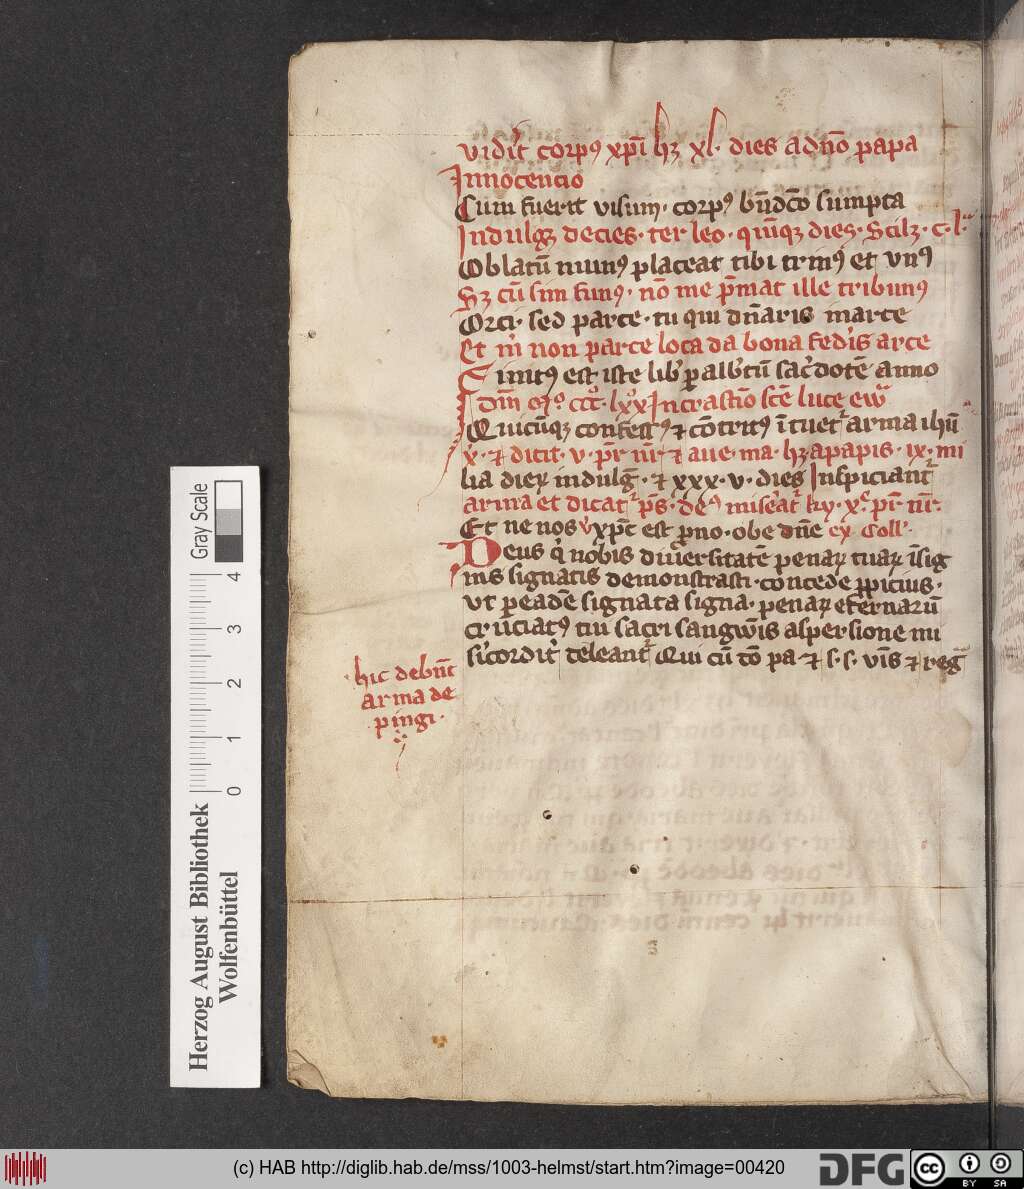 vidit corpꝰ xp̄i hꝫ xl. dies a dn̄o papa
Innocencio
Cum fuerit visum. corpꝰ bn̄dc̄o sumpta
Indulgꝫ decies. ter leo. quīqꝫ dies. Scilꝫ. c. l.
Oblatū munꝰ placeat tibi trinꝰ et vnꝰ
Sꝫ cū sim funꝰ. nō me p̄mat ille tribunꝰ
Orci. sed parce. tu qui dn̄aris in arce
Et m̄ non parce loca da bona fed'is arce
Finitꝰ est iste lib' ꝑ alb'tū sac'dotē anno
Dn̄i Mͦ. cccͦ. lxx In crastīo sc̄e luce ew̄
Quicūqꝫ confessꝰ ⁊ cōtritꝰ ītuet' arma ihū
x. ⁊ dicit. v. pr̄ nr̄ ⁊ aue. ma. hꝫ a papis. ix. mi
lia dieꝝ indulḡ. ⁊ xxx. v. dies Inspiciant'
arma et dicat' p̄s. deꝰ mise'at' ky. x. pr̄ nr̄.
Et ne nos v' xp̄c est pro no. obe dn̄e ex. Coll'.
Deus q' nobis diu'ersitatē penaꝝ tuaꝝ īsig
nis signatis demonstrasti. concede ꝓpicius.
vt ꝑ eadē signata signa. penaꝝ et'ernarū
cruciatꝰ tui sacri sangwīs aspersione mi
sicordit' teleant' Qui cū do pa ⁊ s. s. viuis ⁊ reḡ
hic debn̄t
arma de
pingi.
Gray Scale
0 1 2 3 4
Herzog August Bibliothek
Wolfenbüttel
(c) HAB http://diglib.hab.de/mss/1003-helmst/start.htm?image=00420
DFG
cc BY SA